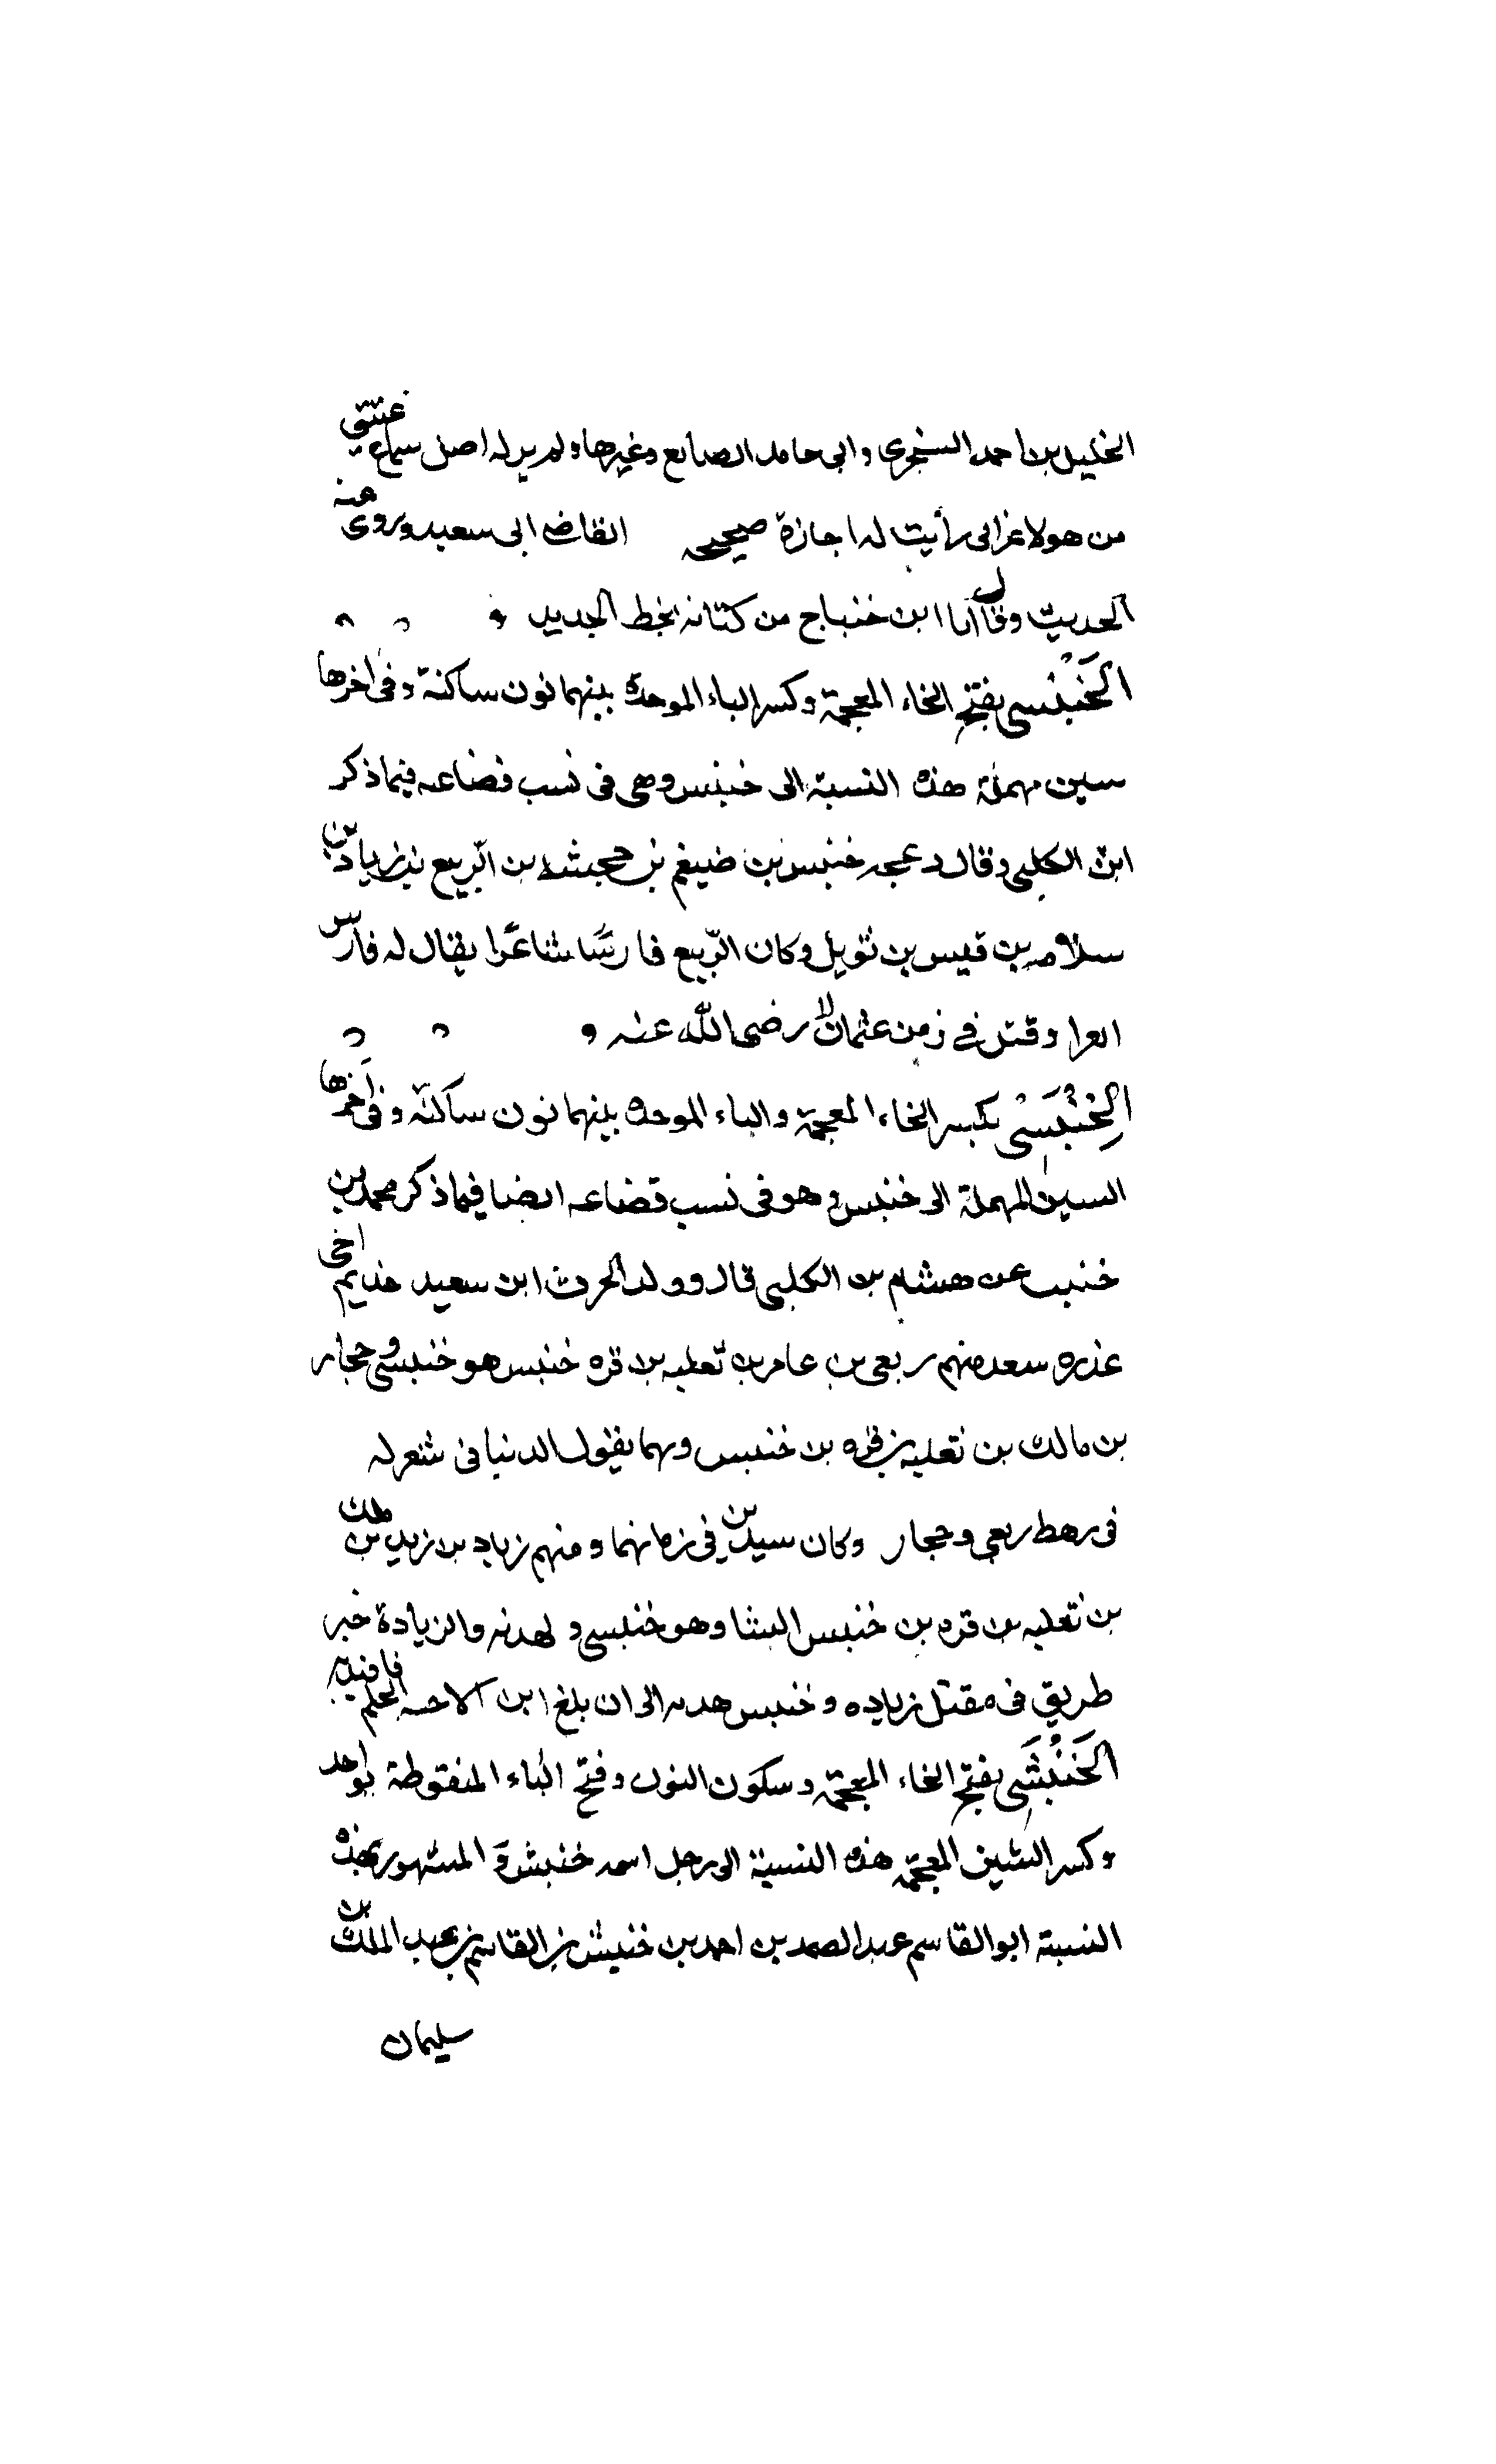 الخليل بن احمد السنجرى وابى حامد الصايع وغيرهما ولم ير له اصل سماع عتيق
من هولا غيرانى رأيت له اجازة صحيحه القاضى ابى سعيد وروى عنه
الحديث وقال انا ابن خنباج من كتابه بخط الجديد
الخَنْبِسى بفتح الخاء المعجمة وكسر الباء الموحدة بينهما نون ساكنة وفى اخرها
سين مهملة هذه النسبة الى خنبس وهى فى نسب قضاعه فيما ذكر
ابن الكلبى وقال وعجه خنبس بن ضيغم بن جحشه بن الرّبيع بن زياد بن
سلامه بن قيس بن تويل وكان الرّبيع فارسًا شاعرًا يقال له فارس
العرا وقتل فى زمن عثمان رضى الله عنه
الخِنْبِسى بكسر الخاء المعجمة والباء الموحده بينهما نون ساكنة وفى اخرها
السين المهملة الى خنبس وهو فى نسب قضاعه ايضا فيما ذكر محمد بن
خبيب عن هشام بن الكلبى قال وولد الحرث ابن سعيد هذيم اخى
عذره سعد منهم ربعى بن عامر بن ثعلبه بن قره خنبس هو خنبسى وحجار
بن مالك بن ثعلبه بن قره بن خنبس وبهما يقول الدنيا فى شعر له
فى رهط ربعى وحجار وكان سيدين فى زمانهما ومنهم زياد بن زيد بن ملك
بن ثعلبه بن قره بن خنبس الشا وهو خنبسى ولهدبه والزيادة خبر
طريق فى مقتل زياده وخنبس هدبه الى ان بلغ ابن الحلم فاقيد به
الخَنْبَشى بفتح الخاء المعجمة وسكون النون وفتح الباء المنقوطة بواحد
وكسر الشين المعجمه هذه النسبة الى رجل اسمه خنبش والمشهور بهذه
النسبة ابو القاسم عبد الصمد بن احمد بن خنبش بن القاسم بن عبد الملك بن
سليمان